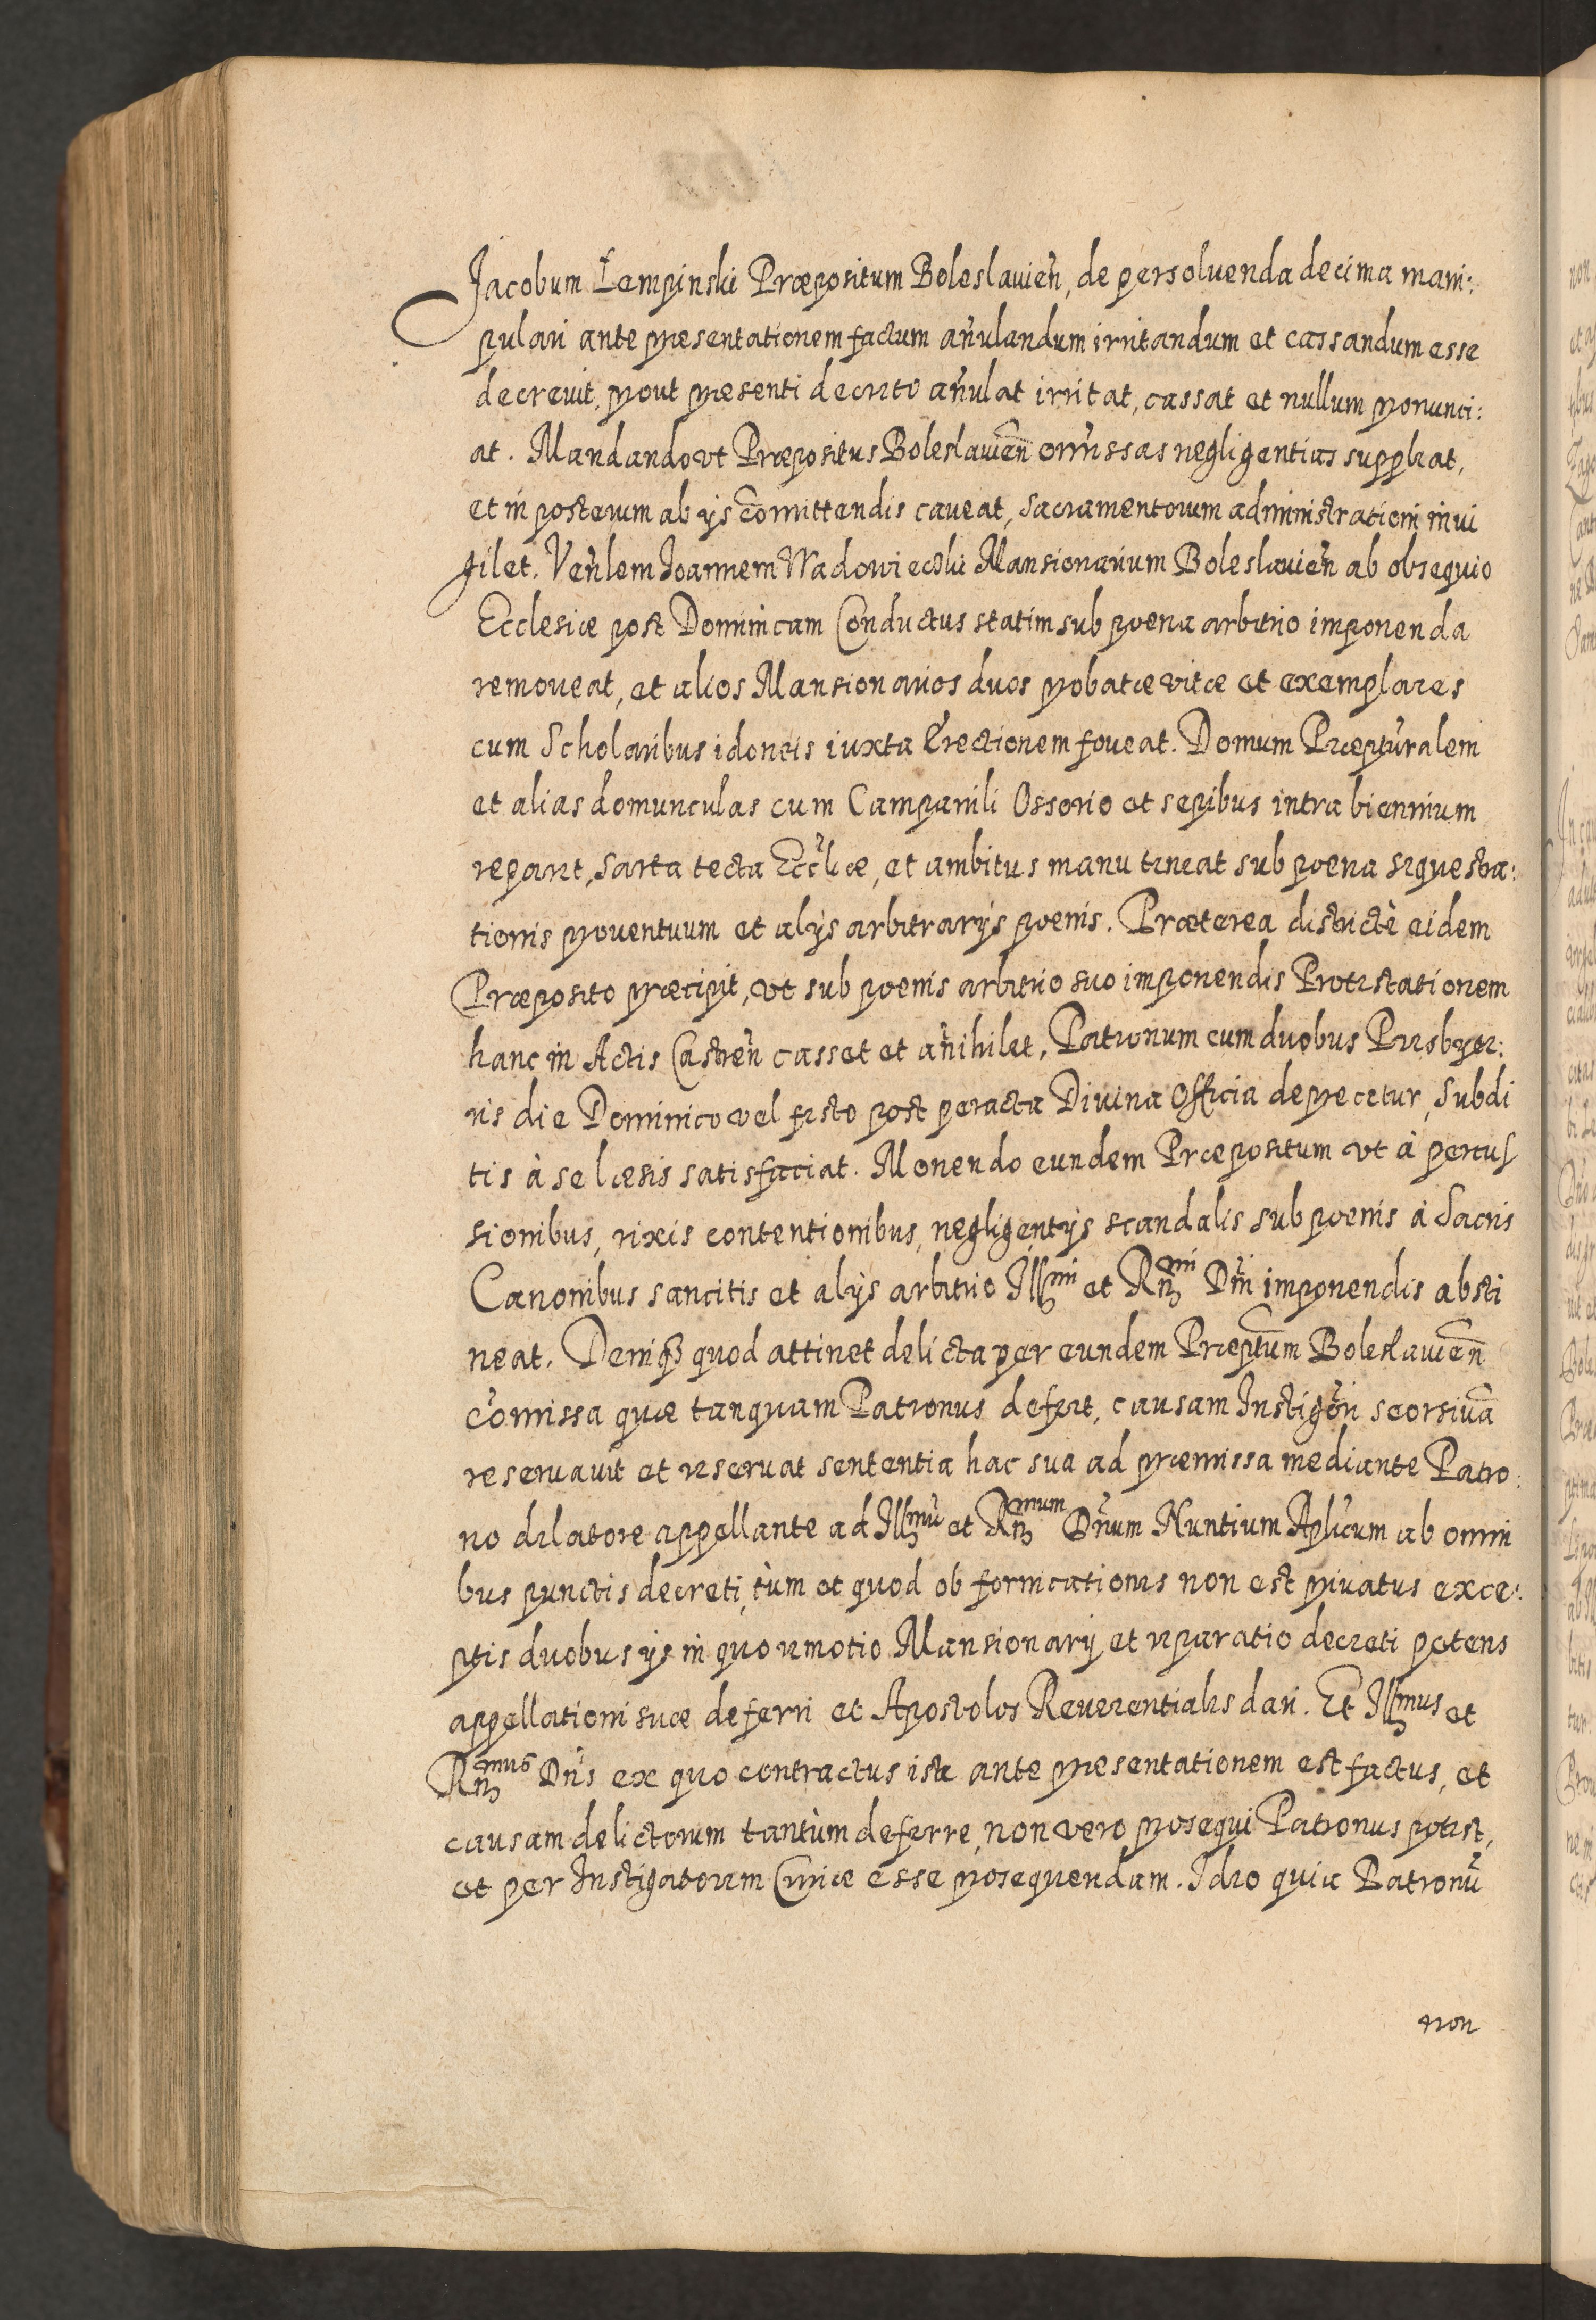 Jacobum Łempinski Præpositum Boleslauien̄, de persoluenda decima mani:
pulari ante presentationem factum an̄ulandum irritandum et cassandum esse
decreuit, prout presenti decreto an̄ulat irritat, cassat et nullum pronunci:
at. Mandando vt Præpositus Boleslauien̄ omissas negligentias suppleat,
et in posterum ab ijs com̄ittendis caveat, Sacramentorum administrationi invi
gilet. Ven̄lem Joannem Wadowiecki Mansionarium Boleslauien̄ ab obsequio
Ecclesiæ post Dominicam Conductus statim sub poena arbitrio imponenda
remoueat, et alios Mansionarios duos probatæ vitæ et exemplares
cum Scholaribus idoneis iuxta Erectionem foveat. Domum Præptūralem
et alias domunculas cum Campanili Ossorio et sepibus intra biennium
reparet, sarta tecta Eccl̄iæ, et ambitus manu teneat sub poena sequestra:
tionis prouentuum et alijs arbitrarijs poenis. Præterea districtè eidem
Præposito præcipit, vt sub poenis arbitrio suo imponendis Protestationem
hanc in Actis Castren̄ casset et an̄ihilet, Patronum cum duobus Presbyte:
ris die Dominico vel festo post peracta Diuina Officia deprecetur, Subdi
tis à se læsis satisfaciat. Monendo eundem Præpositum vt à percus
sionibus, rixis contentionibus, negligentijs scandalis sub poenis à Sacris
Canonibus sancitis et alijs arbitrio Illmi et Rn̄mi Dn̄i imponendis absti
neat. Deniqꝫ quod attinet delicta per eundem Præptum̄ Boleslauien̄
com̄issa quæ tanquam Patronus defert, causam Instigōri seorsiuā
reseruauit et reseruat sententia hac sua ad præmissa mediante Patro:
no delatore appellante ad Illmū et Rn̄mum Dn̄um Nuntium Aplīcum ab omni
bus punctis decreti, tùm et quod ob fornicationis non est priuatus exce:
ptis duobus ijs in quo remotio Mansionarij et reparatio decreti petens
appellationi suæ deferri et Apostolos Reuerentiales dari. Et Illmus et
Rn̄mus Dn̄s ex quo contractus iste ante presentationem est factus, et
causam delictorum tantùm deferre, non vero prosequi Patronus potest,
et per Instigatorem Curiæ esse prosequendam. Ideo quia Patronū
non